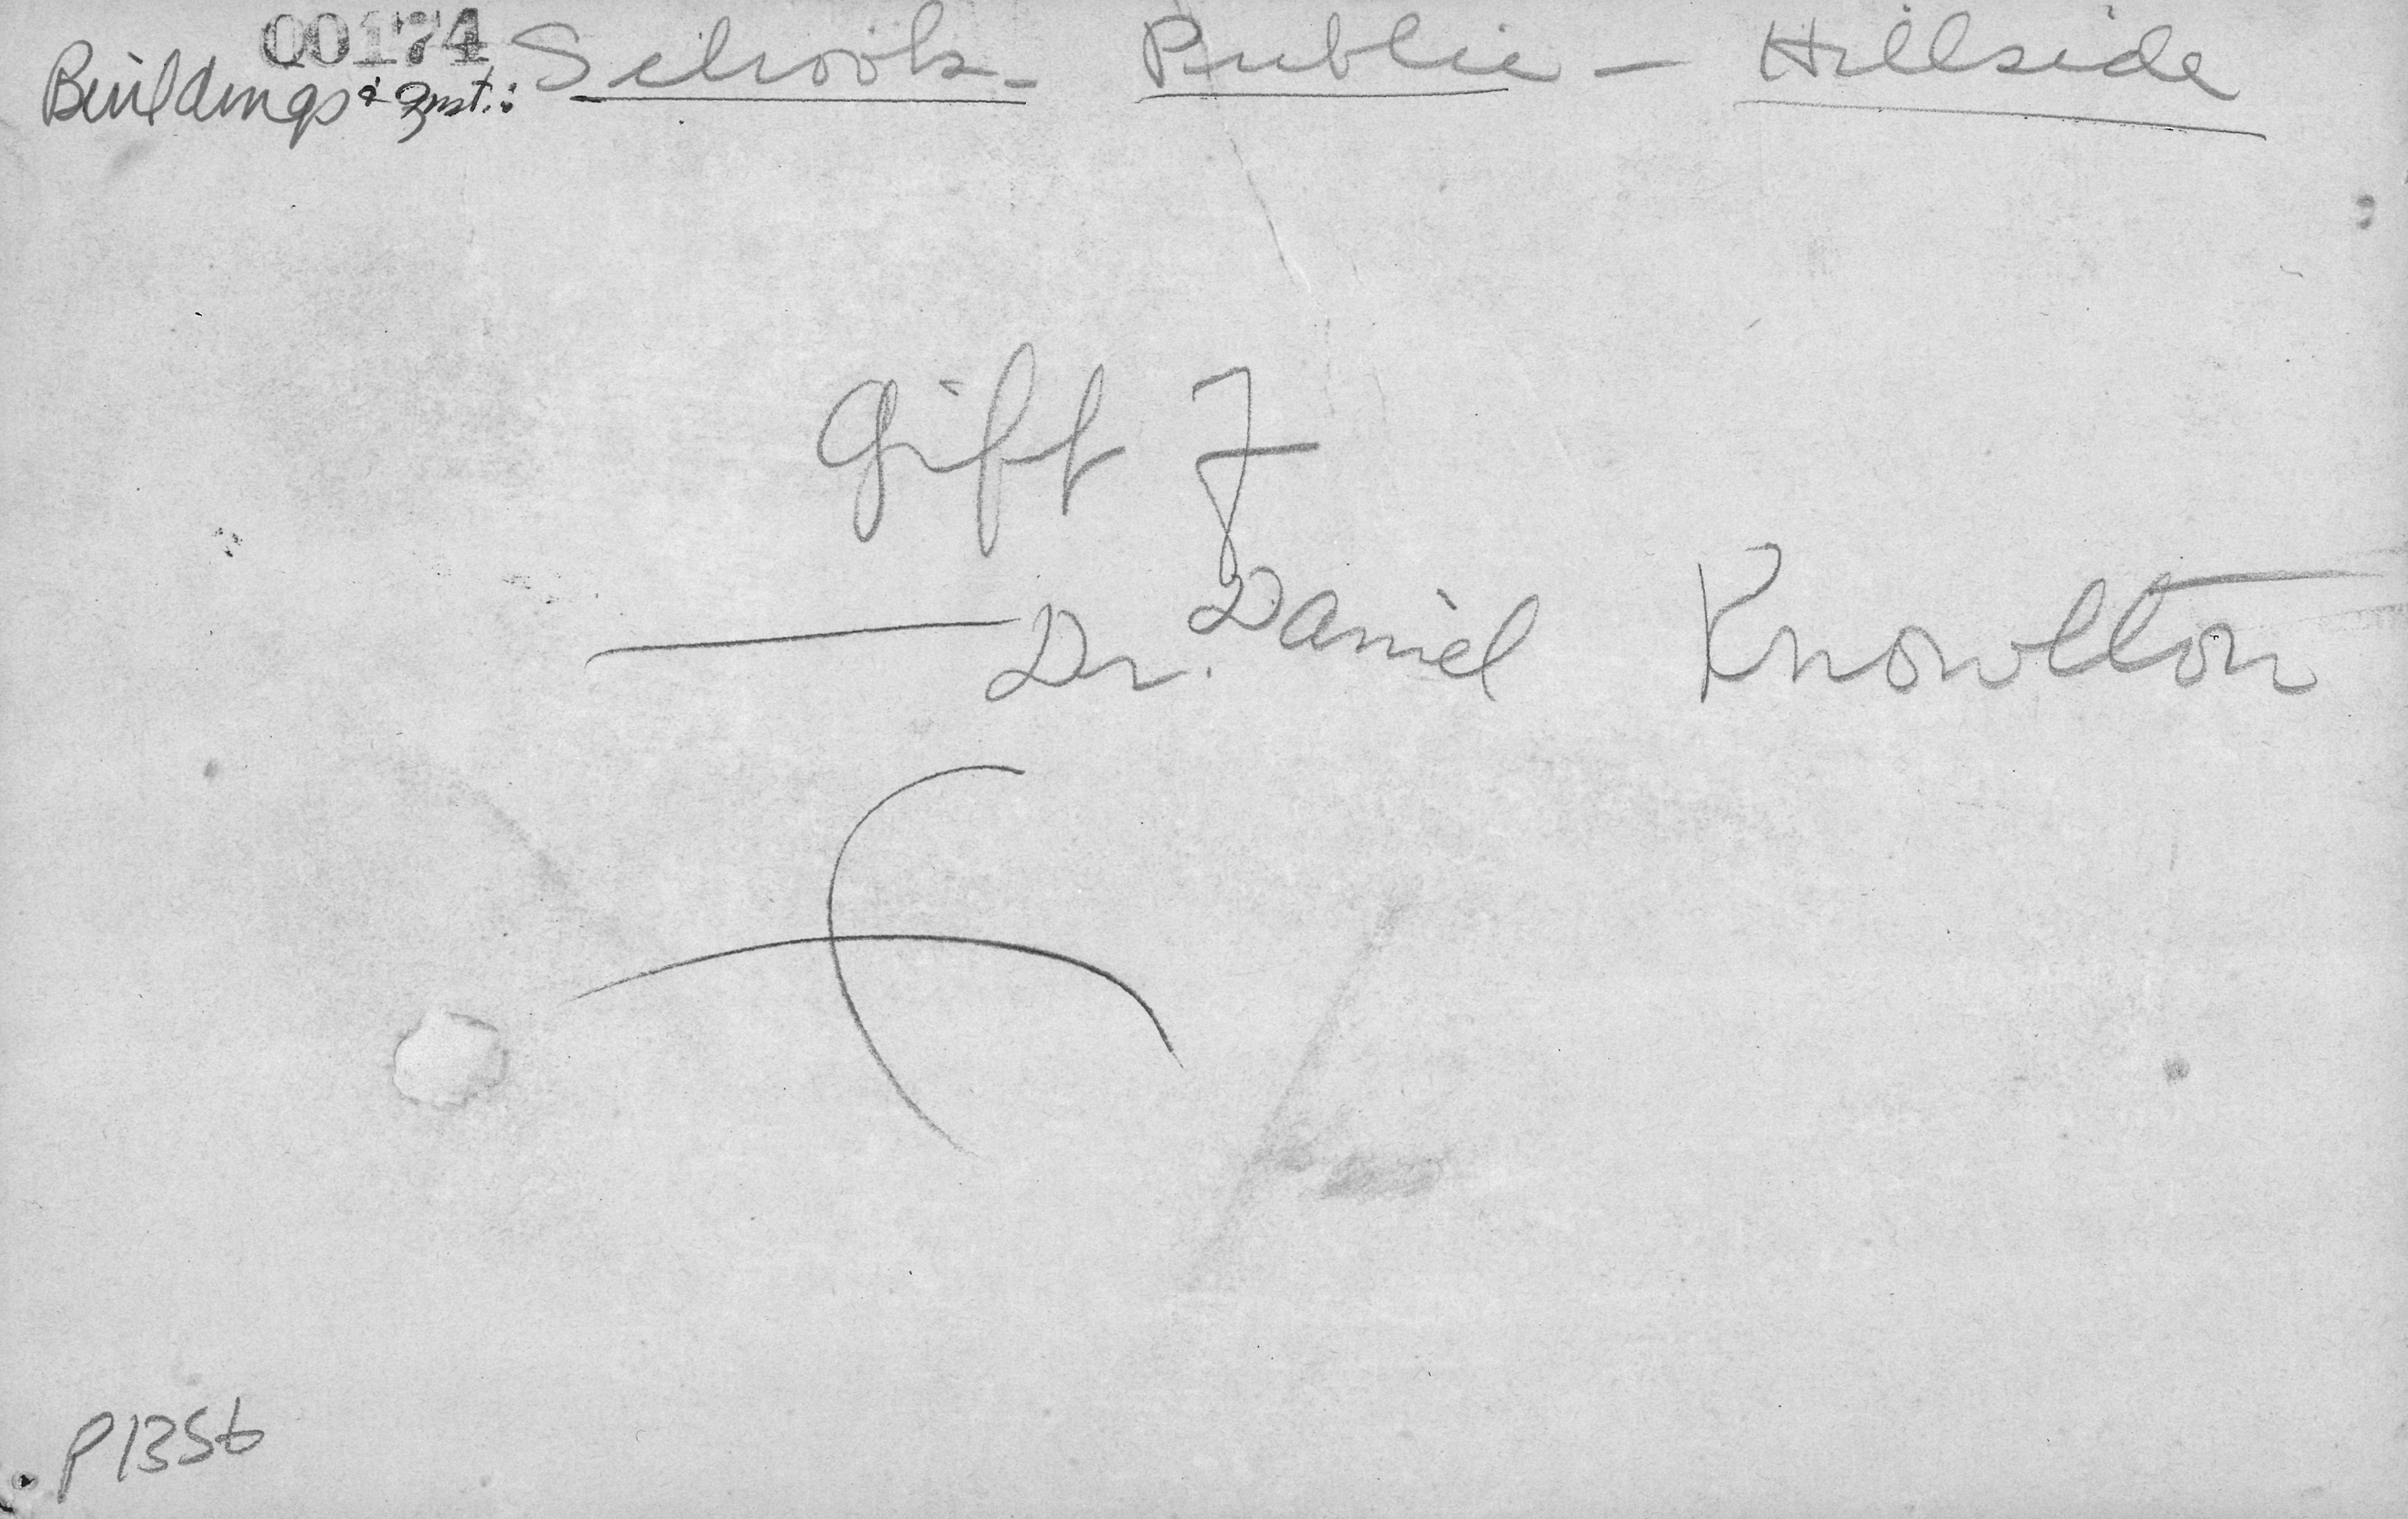 00174
Buildings & Inst.: Schools - Public - Hillside
Gift of
Dr. Daniel Knowlton
P1356